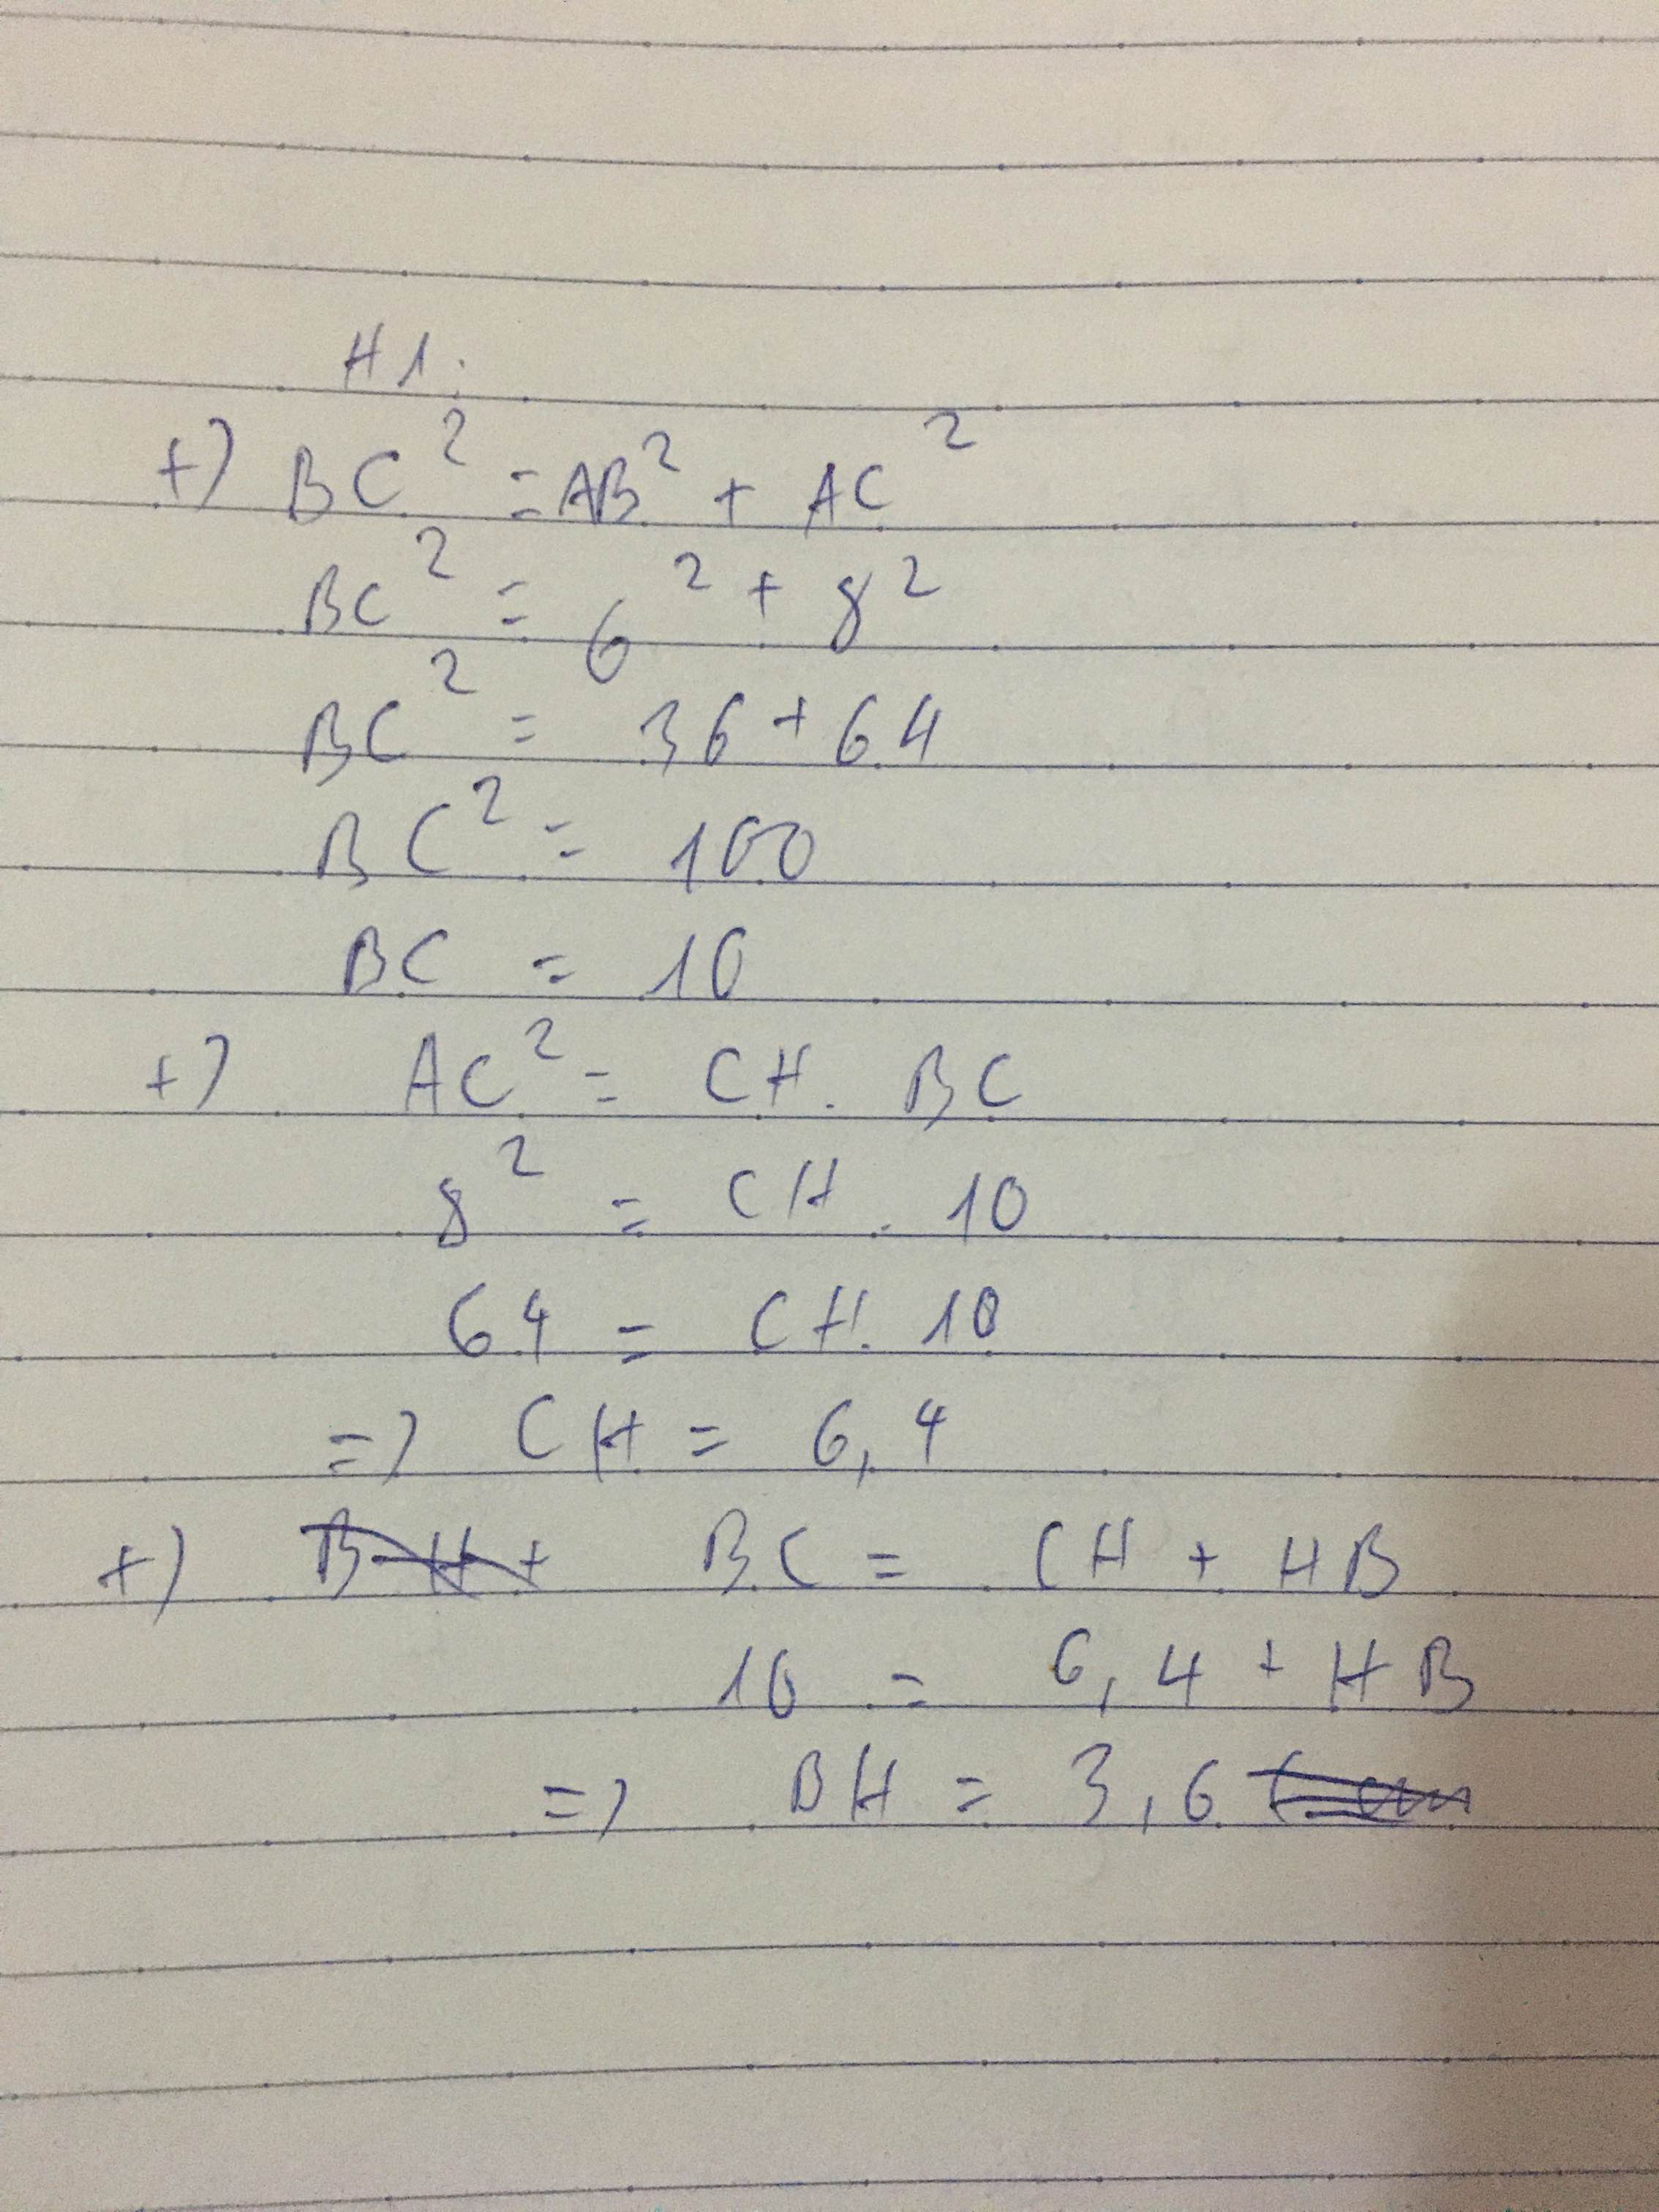 H1:
+) BC² = AB² + AC²
BC² = 6² + 8²
BC² = 36 + 64
BC² = 100
BC = 10
+) AC² = CH. BC
8² = CH. 10
64 = CH. 10
=> CH = 6,4
+) BH+ BC = CH + HB
10 = 6,4 + HB
=> BH = 3,6